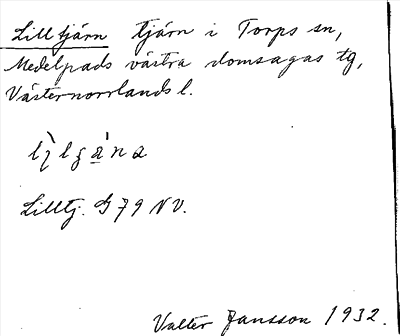 Lilltjärn tjärn i Torps sn,
Medelpads västra domsagas tg,
Västernorrlands l.
Lilltj. G 79 NV.
Valter Jansson 1932.